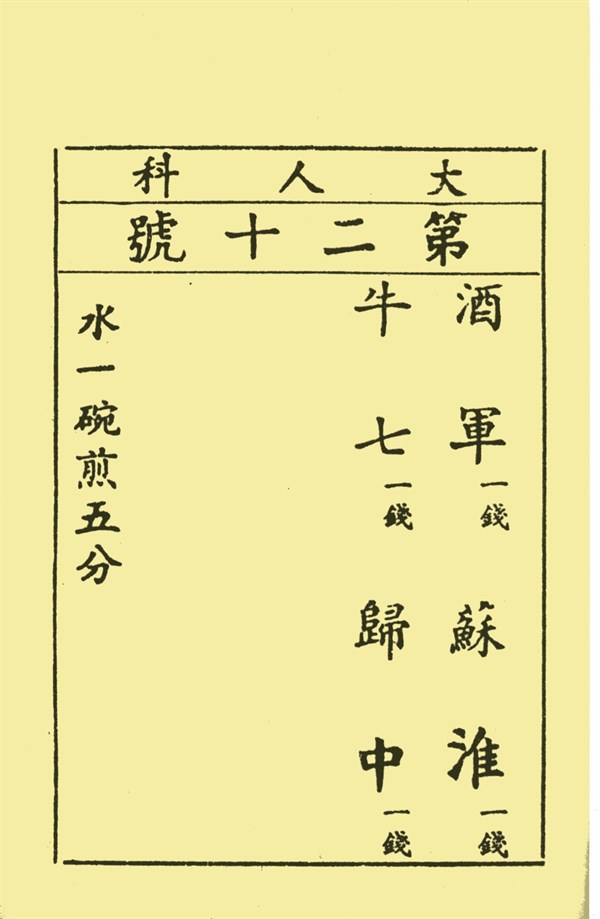 大人科
第二十號
酒軍一錢 蘇淮一錢
牛七一錢 歸中一錢
水一碗煎五分